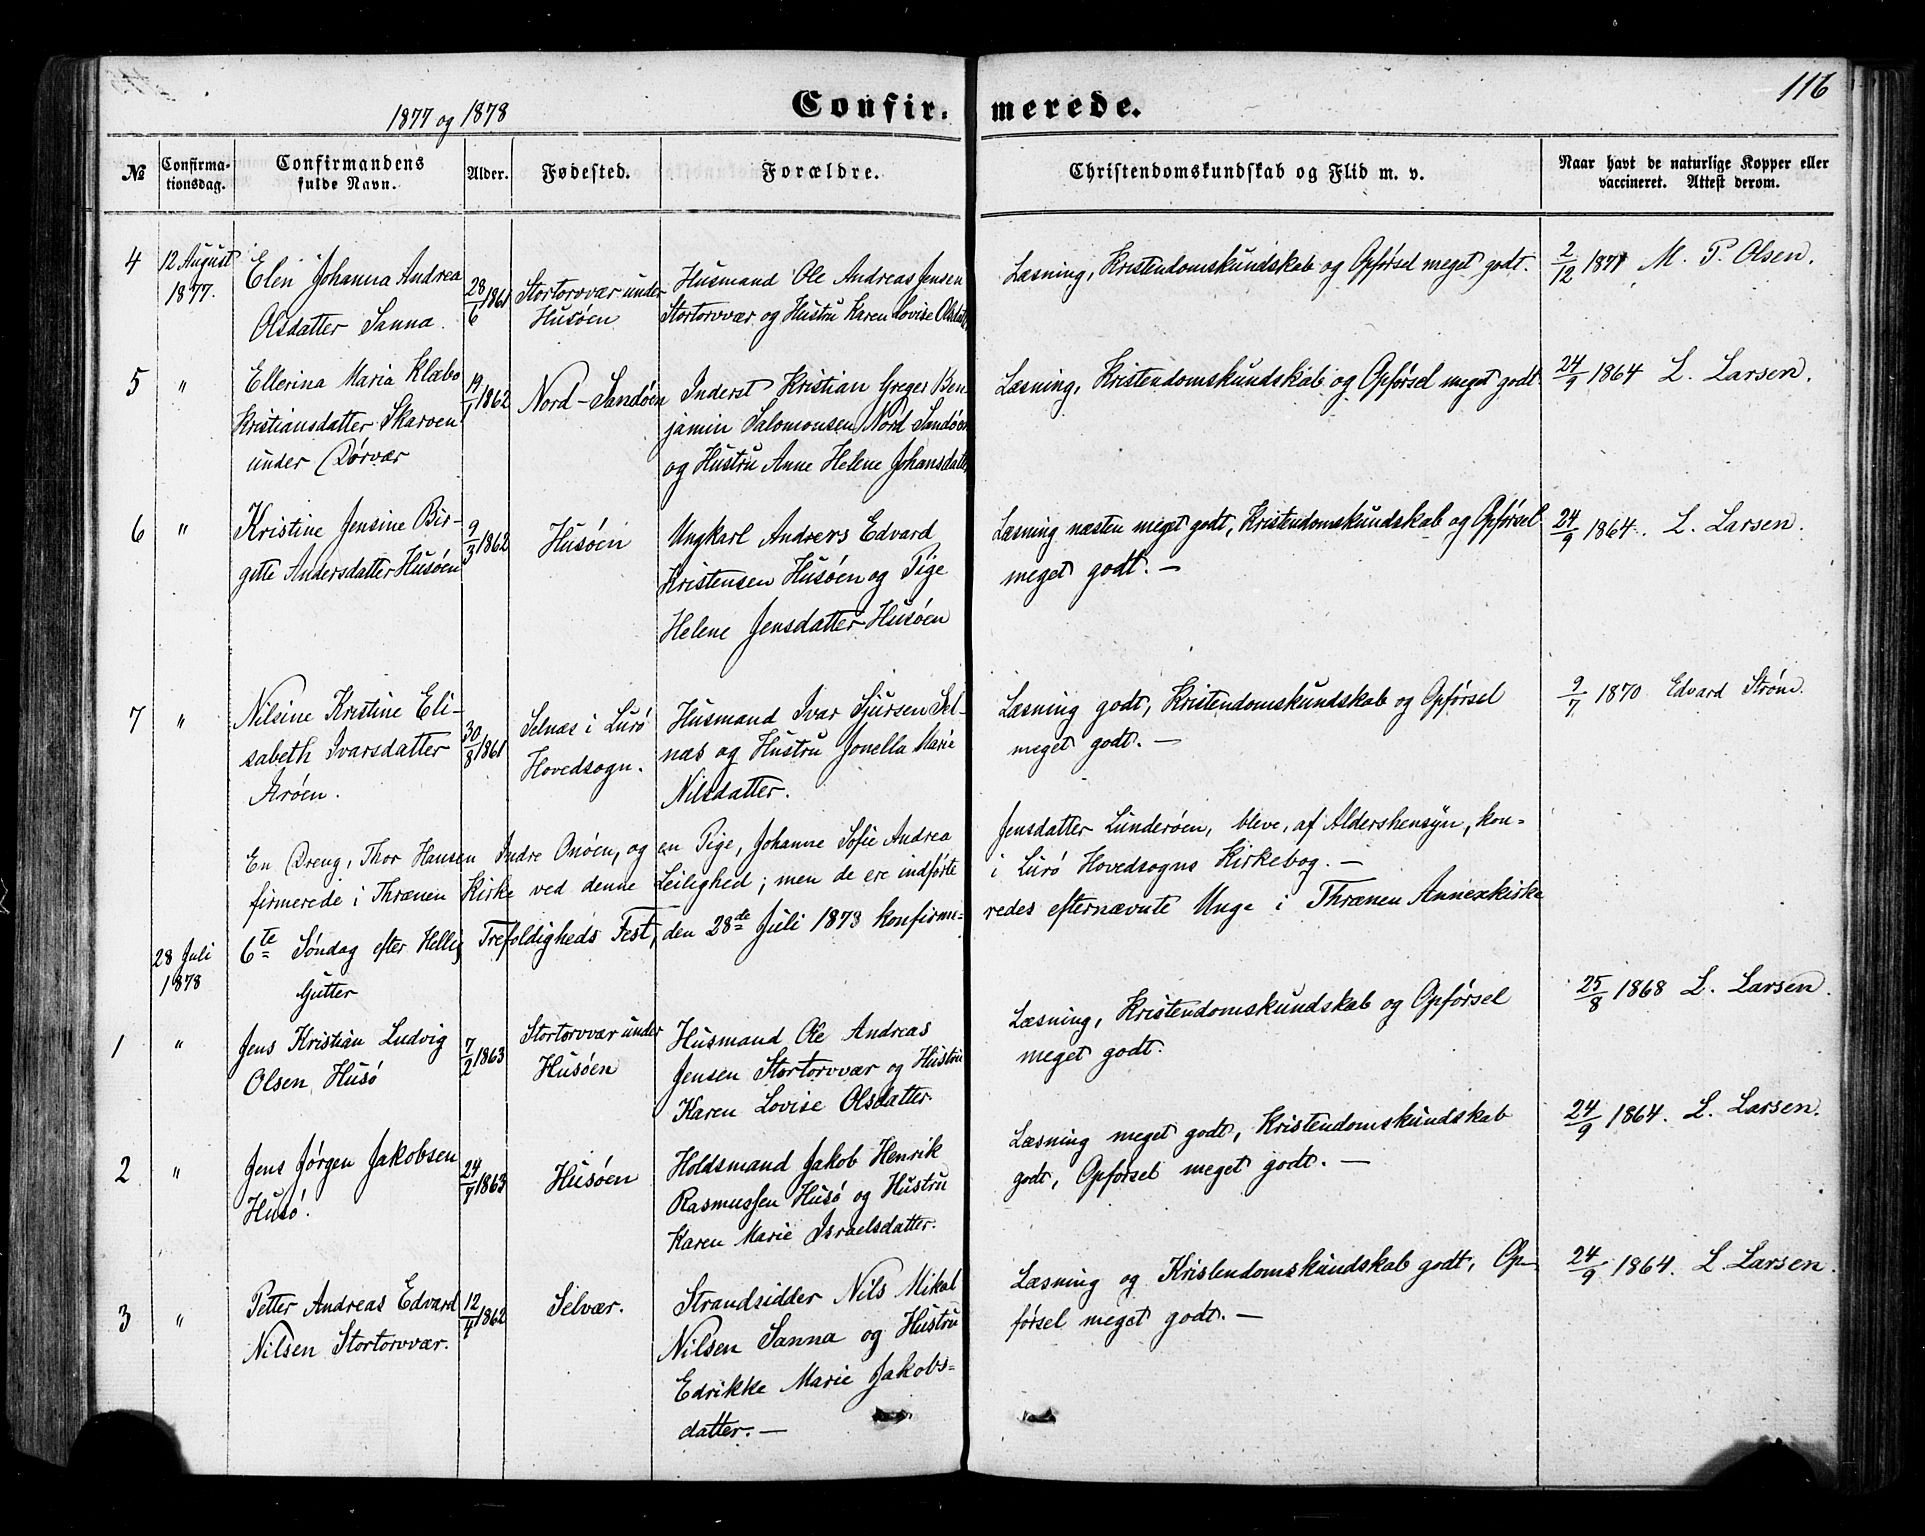 116
1877 og 1878
Confir.
merede.
№
Confirma-
tionsdag.
Confirmandens
fulde Navn.
Alder.
Fødested.
Forældre.
Christendomskundskab og Flid m. v.
Naar havt de naturlige Kopper eller
vaccineret. Attest derom.
4
12 August
1877.
Elen Johanna Andrea
Olsdatter Sanna.
28/6 1861
Stortorvvær under
Husøen
Husmand Ole Andreas Jensen
Stortorvvær og Hustru Karen Lovise Olsdatt
Læsning, Kristendomskundskab og Opførsel meget godt.
2/12 1871 M. P. Olsen.
5
"
Ellerina Maria Klæbo
Kristiansdatter Skarven
under Dørvær
19/1 1862
Nord-Sandøen
Inderst Kristian Greger Ben
jamin Salomonsen Nord Sandøen
og Hustru Anne Helene Johansdatter
Læsning, Kristendomskundskab og Opførsel meget godt
24/9 1864 L. Larsen.
6
"
Kristine Jensine Bir-
gitte Andersdatter Husøen
9/3 1862
Husøen
Ungkarl Anders Edvard
Kristensen Husøen og Pige
Helene Jensdatter Husøen
Læsning næsten meget godt, Kristendomskundskab og Opførsel
meget godt. —
24/9 1864. L. Larsen.
7
"
Nilsine Kristine Eli-
sabeth Ivarsdatter
Arøen.
30/8 1861
Selnæs i Lurø
Hovedsogn.
Husmand Ivar Sjursen Sel-
næs og Hustru Jonella Marie
Nilsdatter.
Læsning godt, Kristendomskundskab og Opførsel
meget godt. —
9/7 1870 Edvard Strøm.
En Dreng, Thor Hansen Indre Onøen, og en Pige, Johanne Sofie Andrea Jensdatter Lunderøen, bleve, af Aldershensyn, kon-
firmerede i Thrænen Kirke ved denne Leilighed; men de ere indførte i Lurø Hovedsogns Kirkebog. —
28 Juli
1878
6te Søndag efter Hellig Trefoldigheds Fest, den 28de Juli 1873 konfirme- redes efternævnte Unge i Thrænen Annexkirke
Gutter
1
"
Jens Kristian Ludvig
Olsen Husø
7/2 1863
Stortorvvær under
Husøen
Husmand Ole Andreas
Jensen Stortorvvær og Hustru
Karen Lovise Olsdatter.
Læsning, Kristendomskundskab og Opførsel
meget godt.
25/8 1868 L. Larsen.
2
"
Jens Jørgen Jakobsen
Husø.
24/7 1863
Husøen
Holdsmand Jakob Henrik
Rasmussen Husø og Hustru
Karen Marie Israelsdatter.
Læsning meget godt, Kristendomskundskab
godt, Opførsel meget godt. —
24/9 1864. L. Larsen.
3
"
Petter Andreas Edvard
Nilsen Stortorvvær.
12/4 1862
Selvær.
Strandsidder Nils Mikal
Nilsen Sanna og Hustru
Edrikke Marie Jakobs-
datter. —
Læsning og Kristendomskundskab godt, Op-
førsel meget godt. —
24/9 1864. L Larsen.